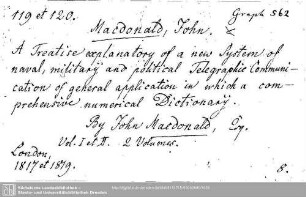 119 et 120.
Graph 562
Macdonald, John.
A Treatise explanatory of a new System of
naval, military and political Telegraphic Communi-
cation of general application in which a com-
prehensive numerical Dictionary.
By John Macdonald, Esq.
Vol. I et II. 2 Volumes.
London,
1817 et 1819.
8.